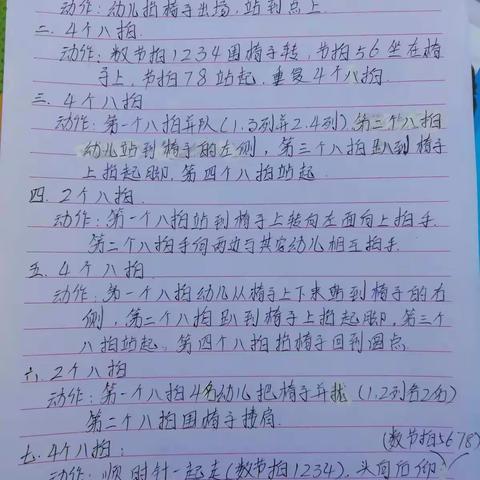 动作：幼儿抬椅子出场，站到点上
二. 4个八拍
动作：数节拍1234围椅子转，节拍56坐在椅
子上，节拍78站起，重复4个八拍
三. 4个八拍
动作：第一个八拍并队(1.3列并2.4列)，第二个八拍
幼儿站到椅子的左侧，第三个八拍趴到椅子
上抬起脚，第四个八拍站起
四. 2个八拍
动作：第一个八拍站到椅子上转向左面向上拍手
第二个八拍手向两边与其它幼儿相互拍手
五. 4个八拍
动作：第一个八拍幼儿从椅子上下来站到椅子的右
侧，第二个八拍趴到椅子上抬起脚，第三个
八拍站起，第四个八拍抬椅子回到圆点
六. 2个八拍
动作：第一个八拍4名幼儿把椅子并拢(1.2列各2名)
第二个八拍围椅子搭肩
(数节拍5678)
七. 4个八拍：
动作：顺时针一起走(数节拍1234)，头向后仰